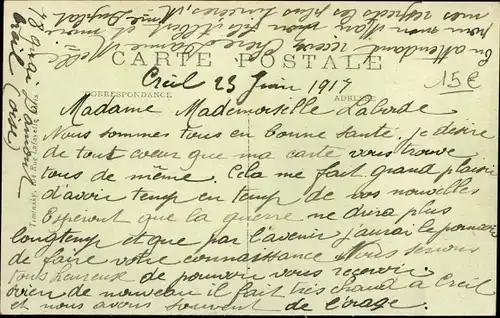 CARTE POSTALE
15€
Creil 23 Juin 1917
CORRESPONDANCE
ADRESSE
Madame Mademoiselle Laborde
Nous sommes tous en bonne santé. je désire
de tout coeur que ma carte vous trouve
tous de même. Cela me fait grand plaisir
d'avoir temp en temp de vos nouvelles
Esperont que la guerre ne dura plus
longtemp et que par l'avenir j'aurai le
de faire votre connaissance Nous serons
tous heureuse de pouvoir vous recevoir
rien de nouveau il fait très chaud à Creil
et nous avons souvent de l'orage.
En attendant recevez Chère Madame Melle
pour mon Mari mon fils et
mes regrets les plus sincères
18 quai d'amont
Creil (Oise)
Rue Lafayette